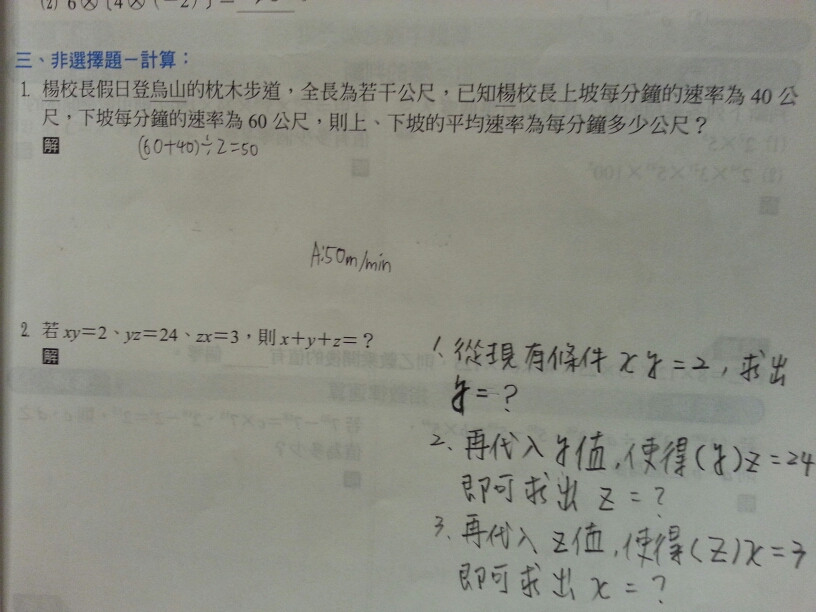 三、非選擇題－計算：
1. 楊校長假日登鳥山的枕木步道，全長為若干公尺，已知楊校長上坡每分鐘的速率為 40 公
尺，下坡每分鐘的速率為 60 公尺，則上、下坡的平均速率為每分鐘多少公尺？
解
(60+40)÷2=50
A:50m/min
2. 若 xy＝2、yz＝24、zx＝3，則 x＋y＋z＝？
解
1. 從現有條件 xy=2, 求出
y=?
2. 再代入y值,使得(y)z=24
即可求出 z=?
3. 再代入z值,使得(z)x=3
即可求出 x=?